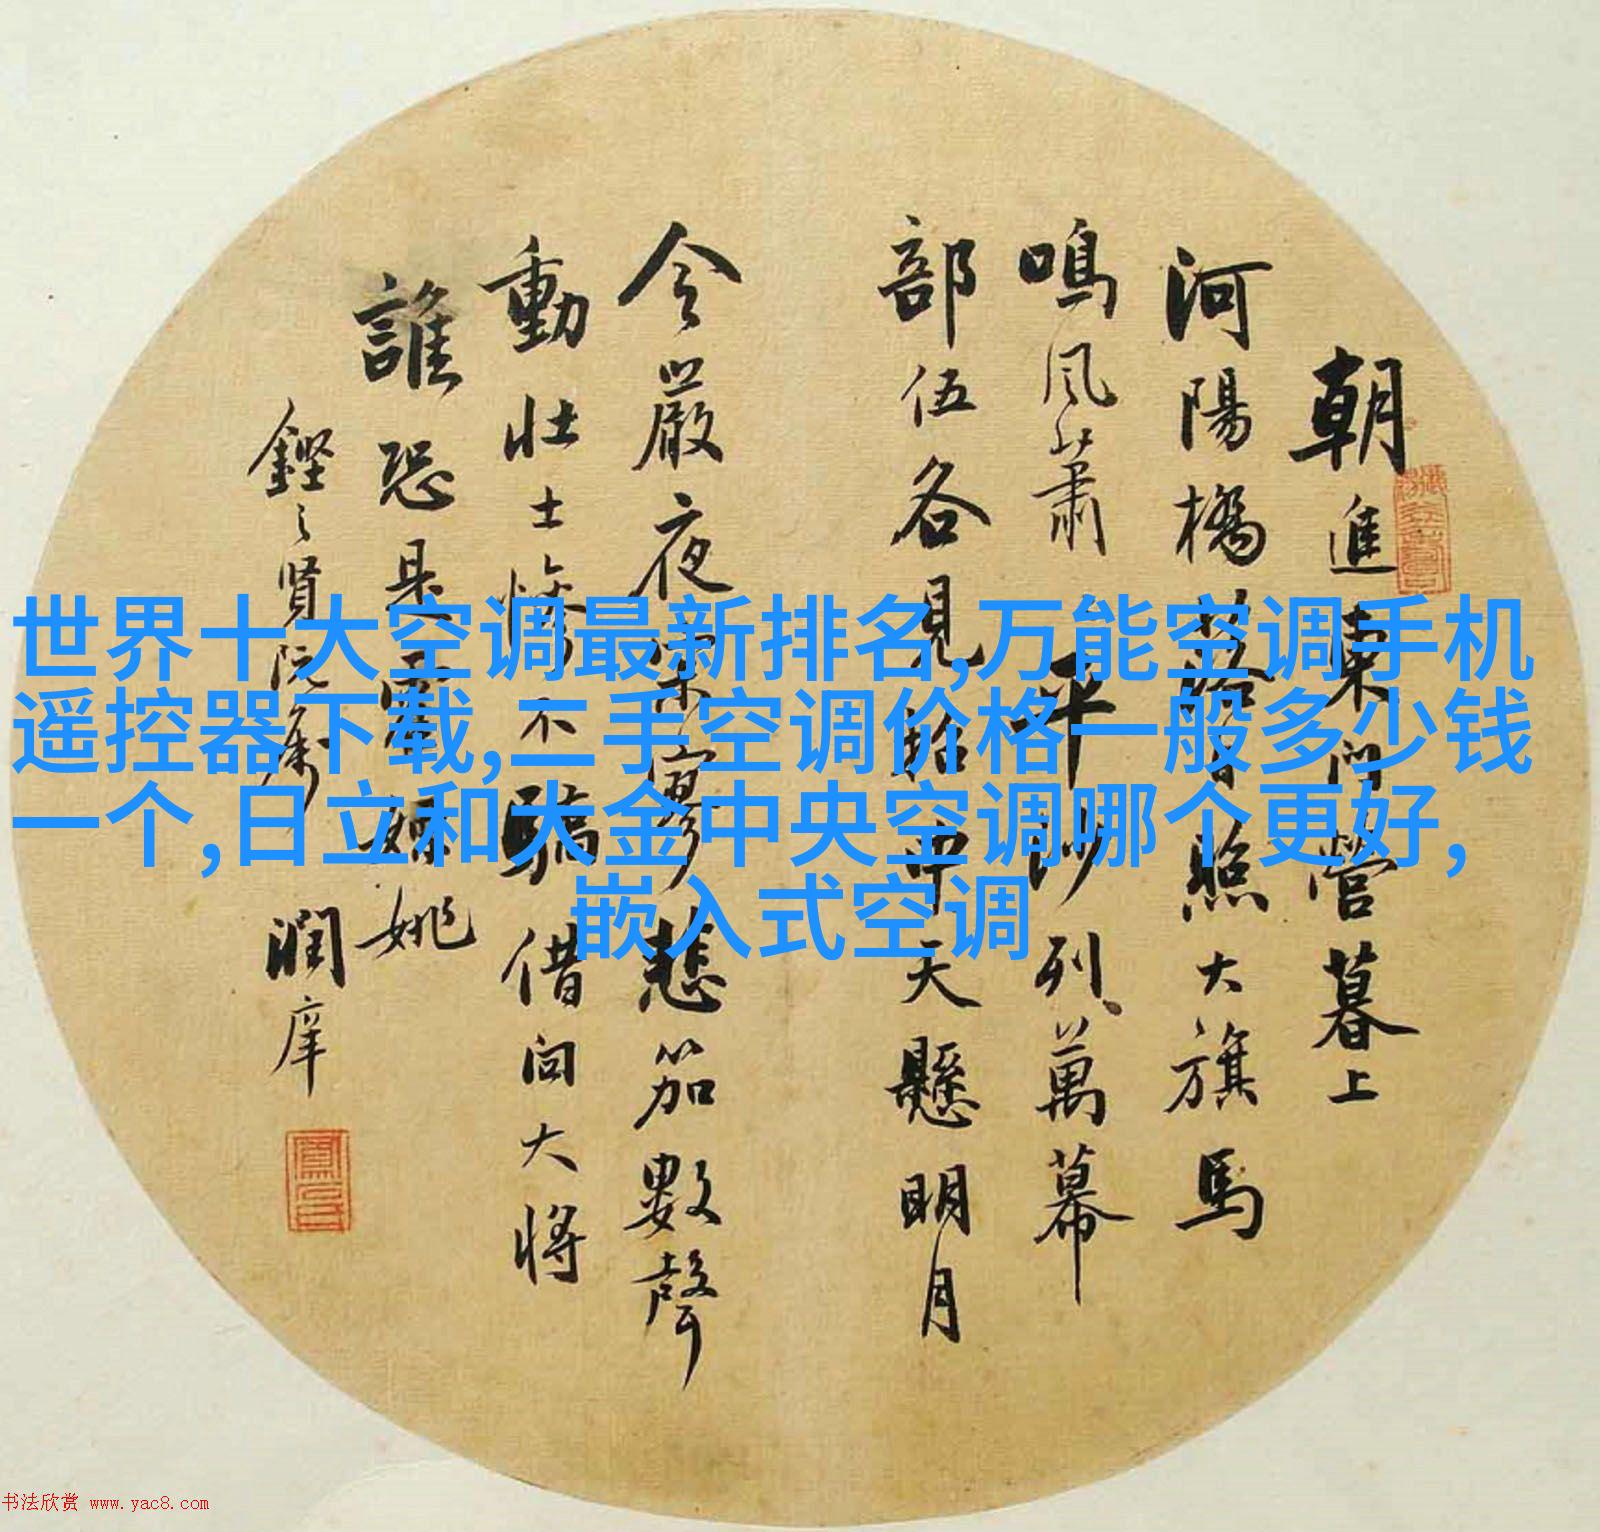 朝進東門營暮上
河陽橋落日照大旗馬
鳴風蕭平沙列萬幕
部伍各見招中天懸明月
令嚴夜寂寥悲笳數聲
動壯士慘不驕借问大將
誰恐是霍嫖姚
潤庠
世界十大空调最新排名,万能空调手机
遥控器下载,二手空调价格一般多少钱
一个,日立和大金中央空调哪个更好,
嵌入式空调
书法欣赏 www.yac8.com